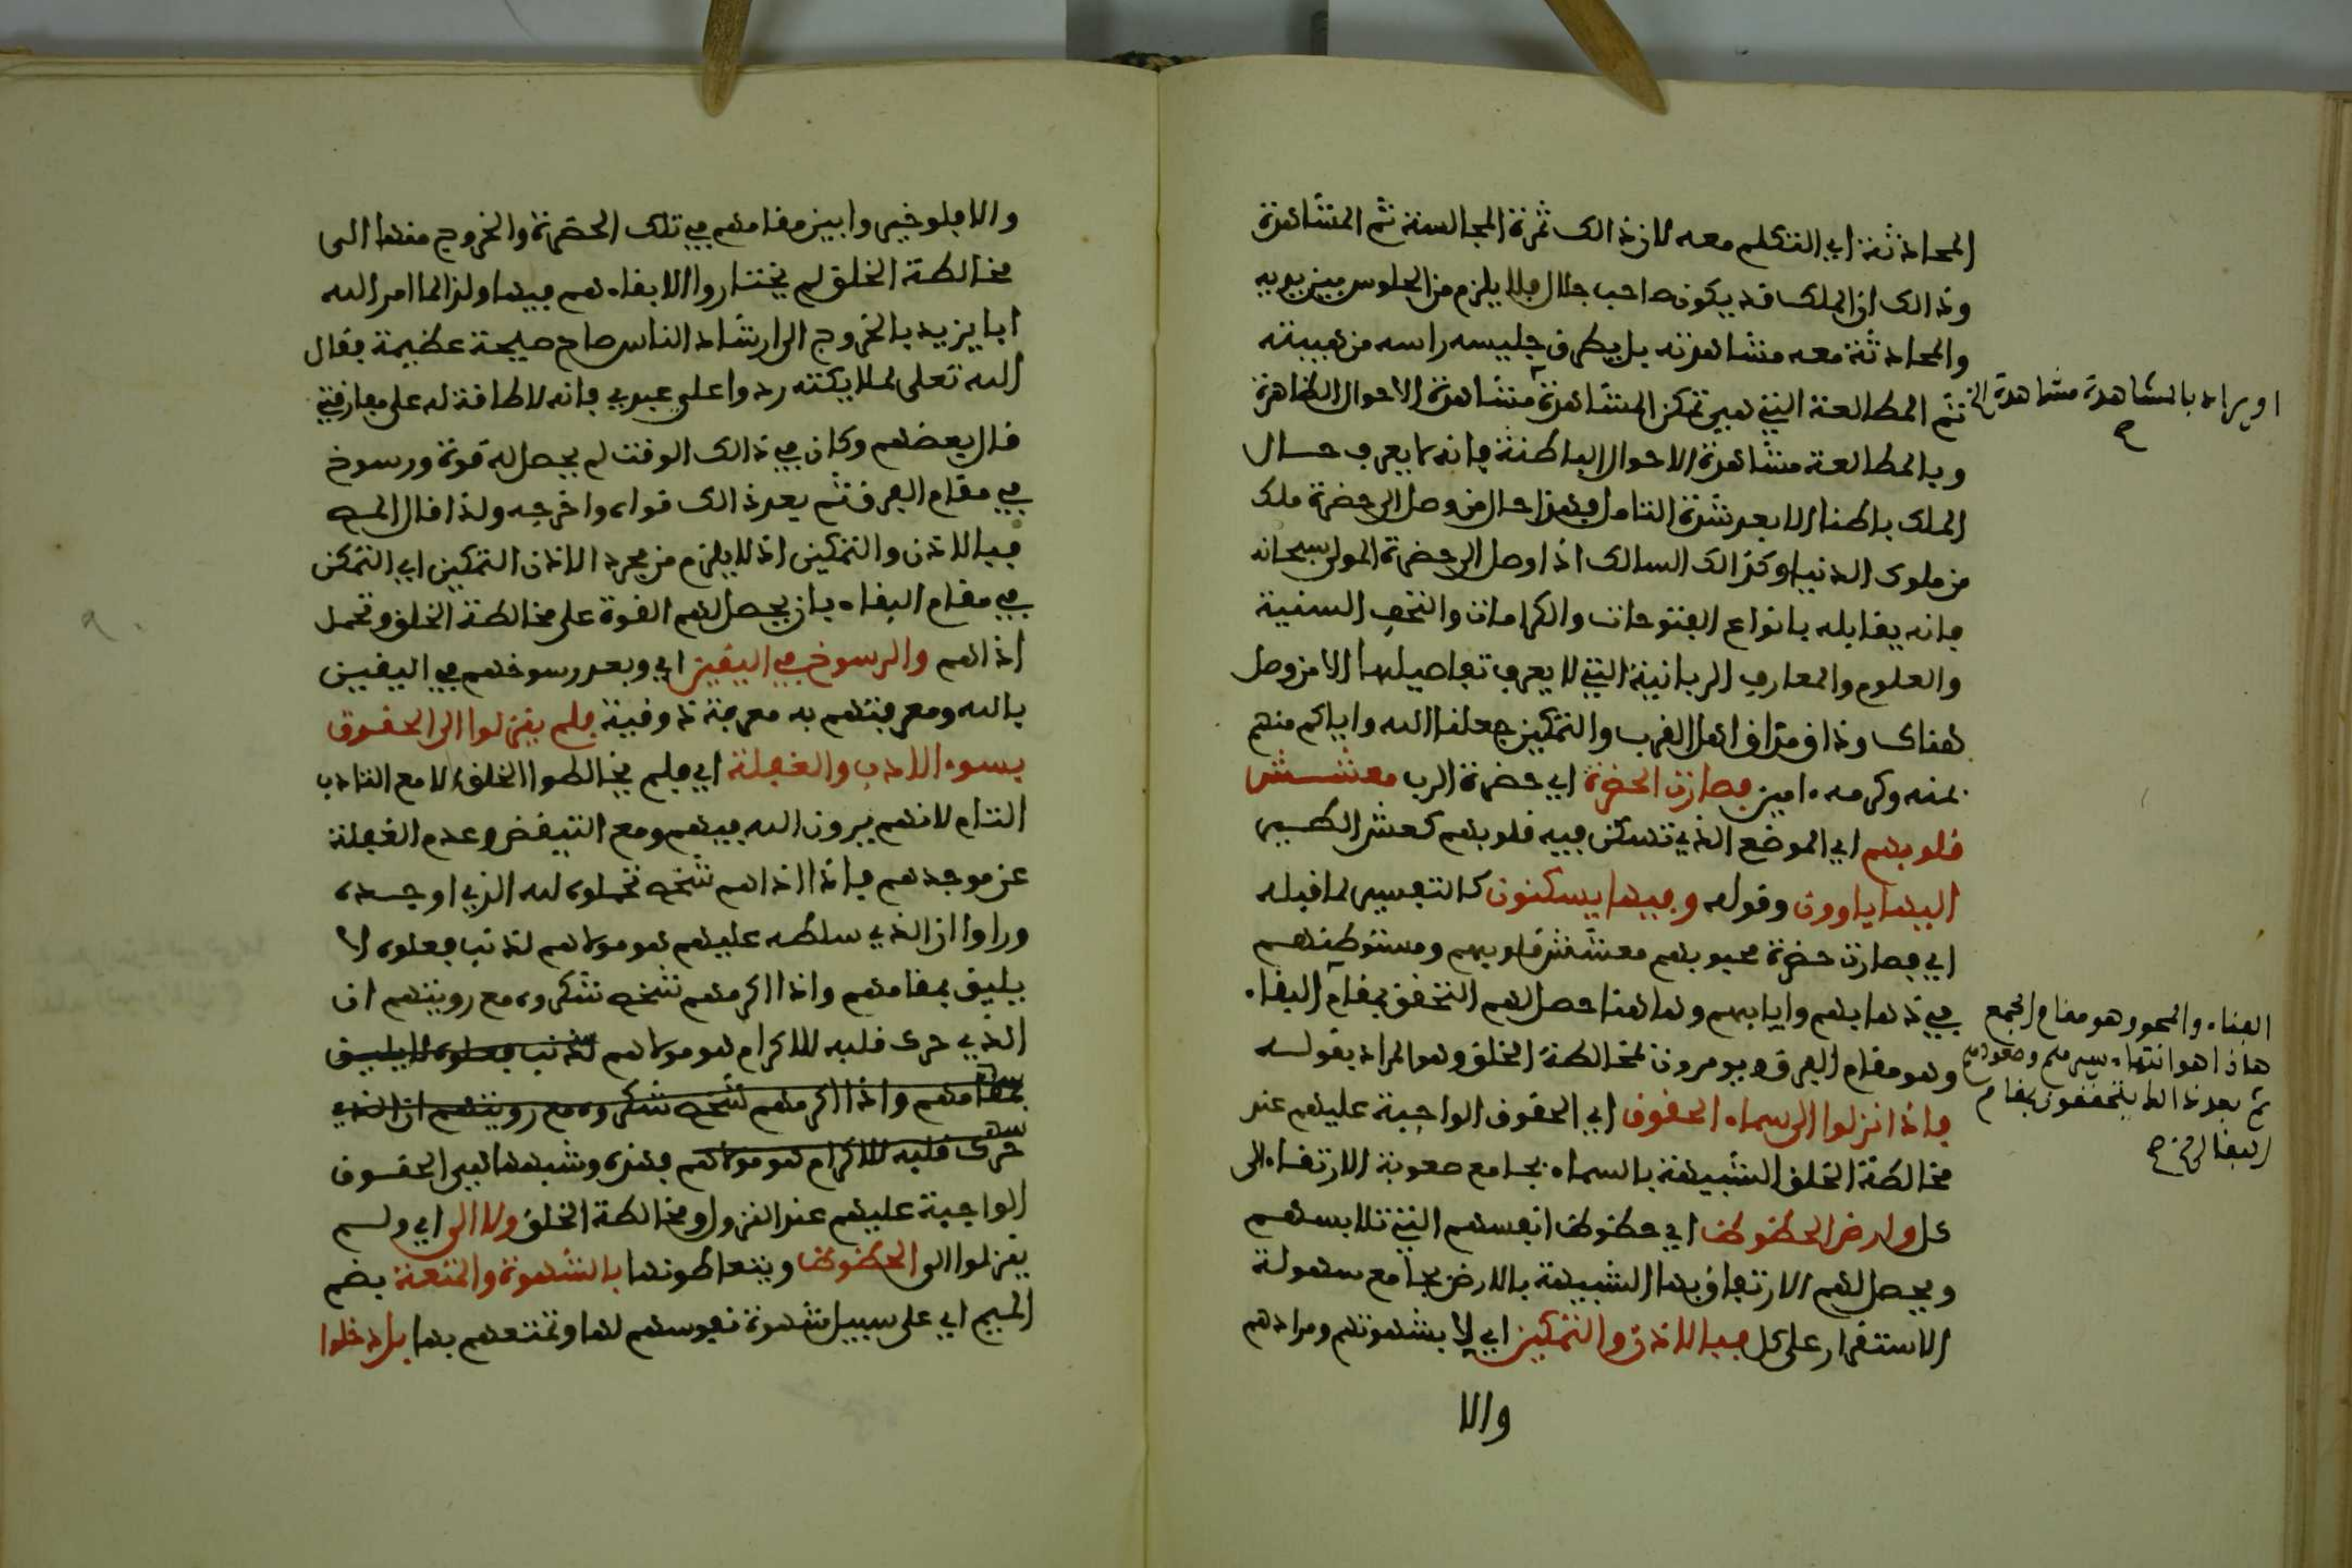 المحادثة اي التكلم معه لان ذالك ثمرة المجالسة ثم المشاهدة
وذالك ان الملك قد يكون صاحب جلال فلا يلزم من الجلوس بين يديه
والمحادثة معه مشاهدته بل يطرق جليسه راسه من هيبته
ثم المطالعة التي هي تمكن المشاهدة مشاهدة الاحوال الظاهرة
او يراد بالمشاهدة مشاهدة الخ
وبالمطالعة مشاهدة الاحوال الباطنة فانه لا يعرف حال
الملك باطنا الا بعد شدة التامل فهذا حال من وصل الى حضرة ملك
من ملوك الدنيا وكذالك السالك اذا وصل الى حضرة المولى سبحانه
فانه يقابله بانواع الفتوحات والكرامات والتحف السنية
والعلوم والمعارف الربانية التي لا يعرف تفاصيلها الا من وصل
هناك وذاق مذاق اهل القرب والتمكين جعلنا الله واياكم منهم
بمنه وكرمه ءامين فصارت الحضرة اي حضرة الرب معشش
قلوبهم اي الموضع الذي تسكن فيه قلوبهم كعش الطير
اليها ياوون وقوله وفيها يسكنون كالتفسير لما قبله
اي فصارت حضرة محبوبهم معشش قلوبهم ومستوطنهم
في ذهابهم وايابهم وهاهنا حصل لهم التحقق بمقام البقاء
الفناء والمحو وهو مقام الجمع
هاذا هو انتهاء سيرهم وصعودهم
ثم بعد ذالك يتحققون بمقام
البقا الخ صح
وهو مقام الفرق ويومرون بمخالطة الخلق وهو المراد بقوله
فاذا نزلوا الى سماء الحقوق اي الحقوق الواجبة عليهم عند
مخالطة الخلق الشبيهة بالسماء بجامع صعوبة الارتقاء الى
كل وارض الحظوظ اي حظوظ انفسهم التي تلابسهم
ويحصل لهم الارتفاق بها الشبيهة بالارض بجامع سهولة
الاستقرار على كل فبالاذن والتمكين اي لا بشهوتهم ومرادهم
والا
والا فلو خيروا بين مقامهم في تلك الحضرة والخروج منها الى
مخالطة الخلق لم يختاروا الا بقاءهم فيها ولذا لما امر الله
ابا يزيد بالخروج الى ارشاد الناس صاح صيحة عظيمة فقال
الله تعلى لملايكته ردوا علي عبدي فانه لا طاقة له على مفارقتي
قال بعضهم وكان في ذالك الوقت لم يحصل له قوة ورسوخ
في مقام الفرق ثم بعد ذالك قواه واخرجه ولذا قال المص
فبالاذن والتمكين اذ لا يلزم من مجرد الاذن التمكين اي التمكن
في مقام البقاء بان يحصل لهم القوة على مخالطة الخلق وتحمل
اذاهم والرسوخ في اليقين اي وبعد رسوخهم في اليقين
بالله ومعرفتهم به معرفة ذوقية فلم ينزلوا الى الحقوق
بسوء الادب والغفلة اي فلم يخالطوا الخلق الا مع التادب
التام لانهم يرون الله فيهم ومع التيقض وعدم الغفلة
عن موجدهم فاذا اذاهم شخص تحملوه لله الذي اوجده
وراوا ان الذي سلطه عليهم هو مولاهم لذنب فعلوه لا
يليق بمقامهم واذا اكرمهم شخص شكروه مع رويتهم ان
الذي حرك قلبه للاكرام هو مولاهم لذنب فعلوه لا يليق
بمقامهم واذا اكرمهم شخص شكروه مع رويتهم ان الذي
حرك قلبه للاكرام هو مولاهم فهذه وشبهها هي الحقوق
الواجبة عليهم عند النزول ومخالطة الخلق ولا الى اي ولم
ينزلوا الى الحظوظ ويتعاطونها بالشهوة والمتعة بضم
الميم اي على سبيل شهوة نفوسهم لها وتمتعهم بها بل دخلوا